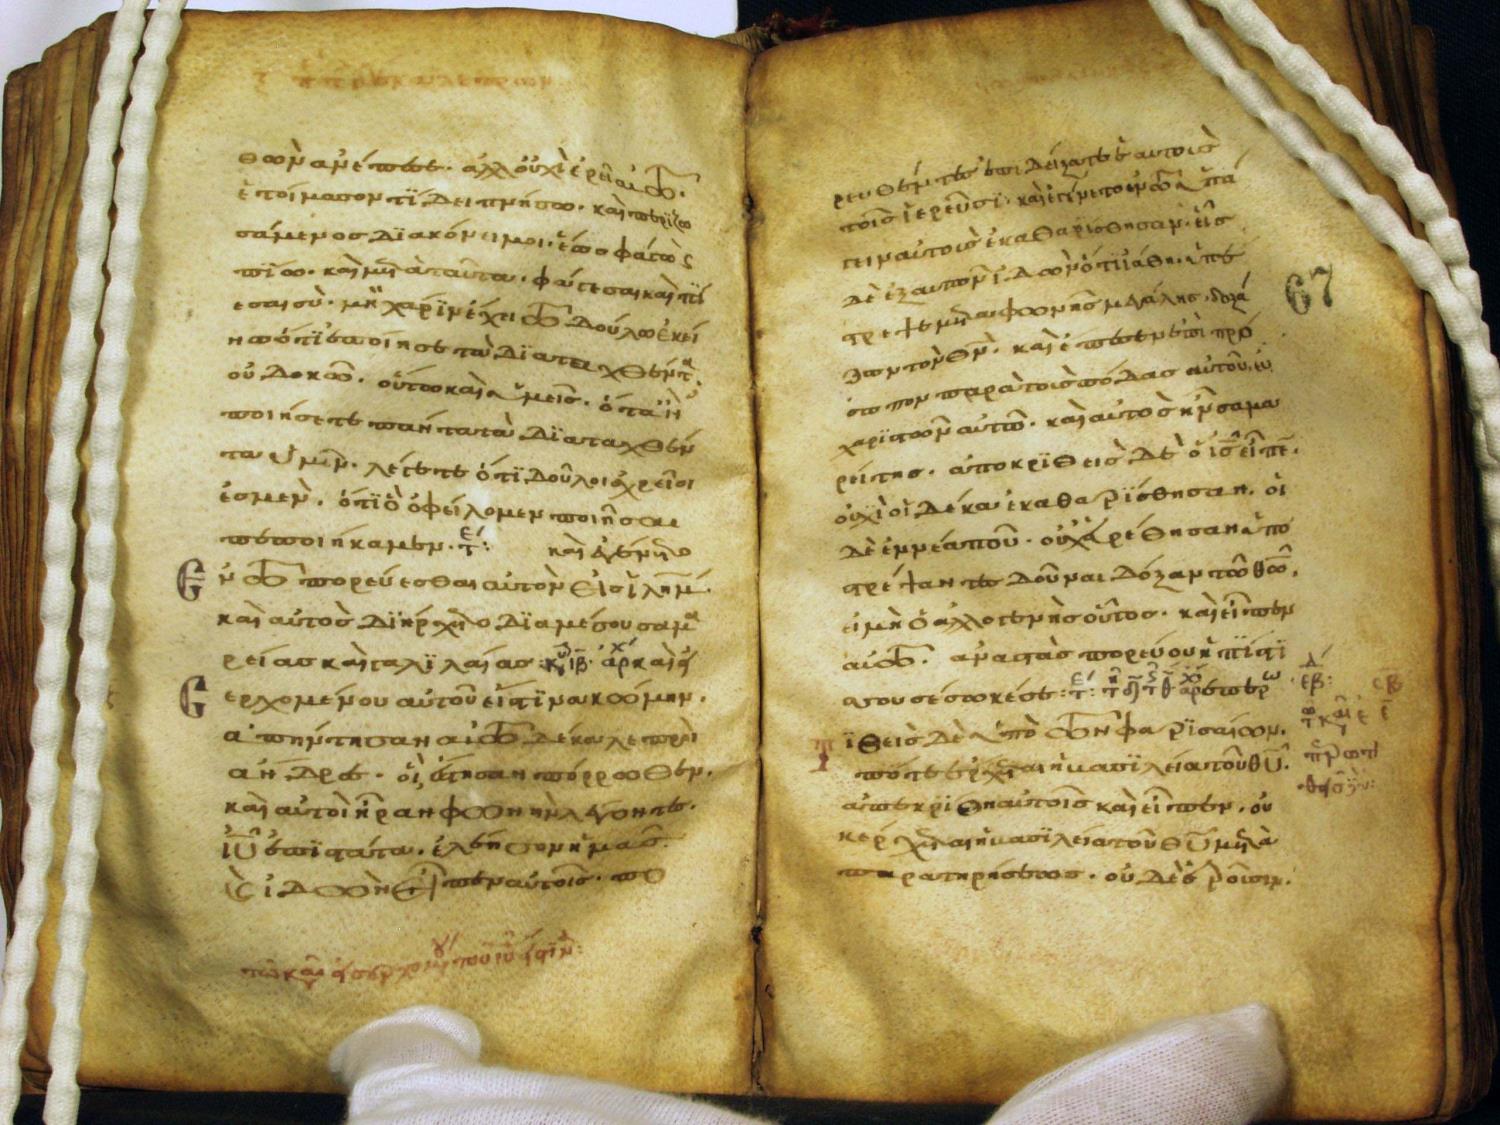 θὼν ἀνέπεσε· ἀλλ' οὐχὶ ἐρεῖ αὐτῶ·
ἑτοίμασον τί δειπνήσω· καὶ περιζω
σάμενος διακόνει μοι· ἕως φάγω κ(αὶ)
πίω· καὶ μετὰ ταῦτα· φάγεσαι καὶ πί
εσαι σύ· μὴ χάριν ἔχει τῶ δούλω ἐκεί
νω ὅτι ἐποίησε τὰ διαταχθέντα·
οὐ δοκῶ· οὕτω καὶ ὑμεῖς· ὅταν
ποιήσετε πάντα τὰ διαταχθέν
τα ὑμῖν· λέγετε ὅτι δοῦλοι ἀχρεῖοι
ἐσμέν· ὅτι ὃ ὀφείλομεν ποιῆσαι
πεποιήκαμεν· καὶ ἐγένετο
ἐν τῶ πορεύεσθαι αὐτὸν εἰς ἱλημ·
καὶ αὐτὸς διήρχετο διὰ μέσου σαμα
ρείας καὶ γαλιλαίας· καὶ εἰσ
ερχομένου αὐτοῦ εἴς τινα κώμην·
ἀπήντησαν αὐτῶ δέκα λεπροὶ
ἄνδρες· οἳ ἔστησαν πόρρωθεν·
καὶ αὐτοὶ ἦραν φωνὴν λέγοντες·
ἰῦ ἐπιστάτα· ἐλέησον ἡμᾶς·
καὶ ἰδὼν εἶπεν αὐτοῖς· πο
ρευθέντες ἐπιδείξατε ἑαυτοὺς
τοῖς ἱερεῦσι· καὶ ἐγένετο ἐν τῶ ὑπά
γειν αὐτοὺς ἐκαθαρίσθησαν· εἷς
δὲ ἐξ αὐτῶν ἰδὼν ὅτι ἰάθη· ὑπέ
στρεψε μετὰ φωνῆς μεγάλης· δοξά
ζων τὸν θν· καὶ ἔπεσεν ἐπὶ πρό
σωπον παρὰ τοὺς πόδας αὐτοῦ, εὐ
χαριστῶν αὐτῶ· καὶ αὐτὸς ἦν σαμα
ρείτης· ἀποκριθεὶς δὲ ὁ ις εἶπε·
οὐχὶ οἱ δέκα ἐκαθαρίσθησαν· οἱ
δὲ ἐννέα ποῦ· οὐχ εὑρέθησαν ὑπο
στρέψαντες δοῦναι δόξαν τῶ θῶ·
εἰ μὴ ὁ ἀλλογενὴς οὗτος· καὶ εἶπεν
αὐτῶ· ἀναστὰς πορεύου ἡ πίστις
σου σέσωκέ σε· ἐπερω
τηθεὶς δὲ ὑπὸ τῶν φαρισαίων·
πότε ἔρχεται ἡ βασιλεία τοῦ θῦ·
ἀπεκρίθη αὐτοῖς καὶ εἶπεν· οὐ
κ ἔρχεται ἡ βασιλεία τοῦ θῦ μετὰ
παρατηρήσεως· οὐδὲ ἐροῦσιν·
67